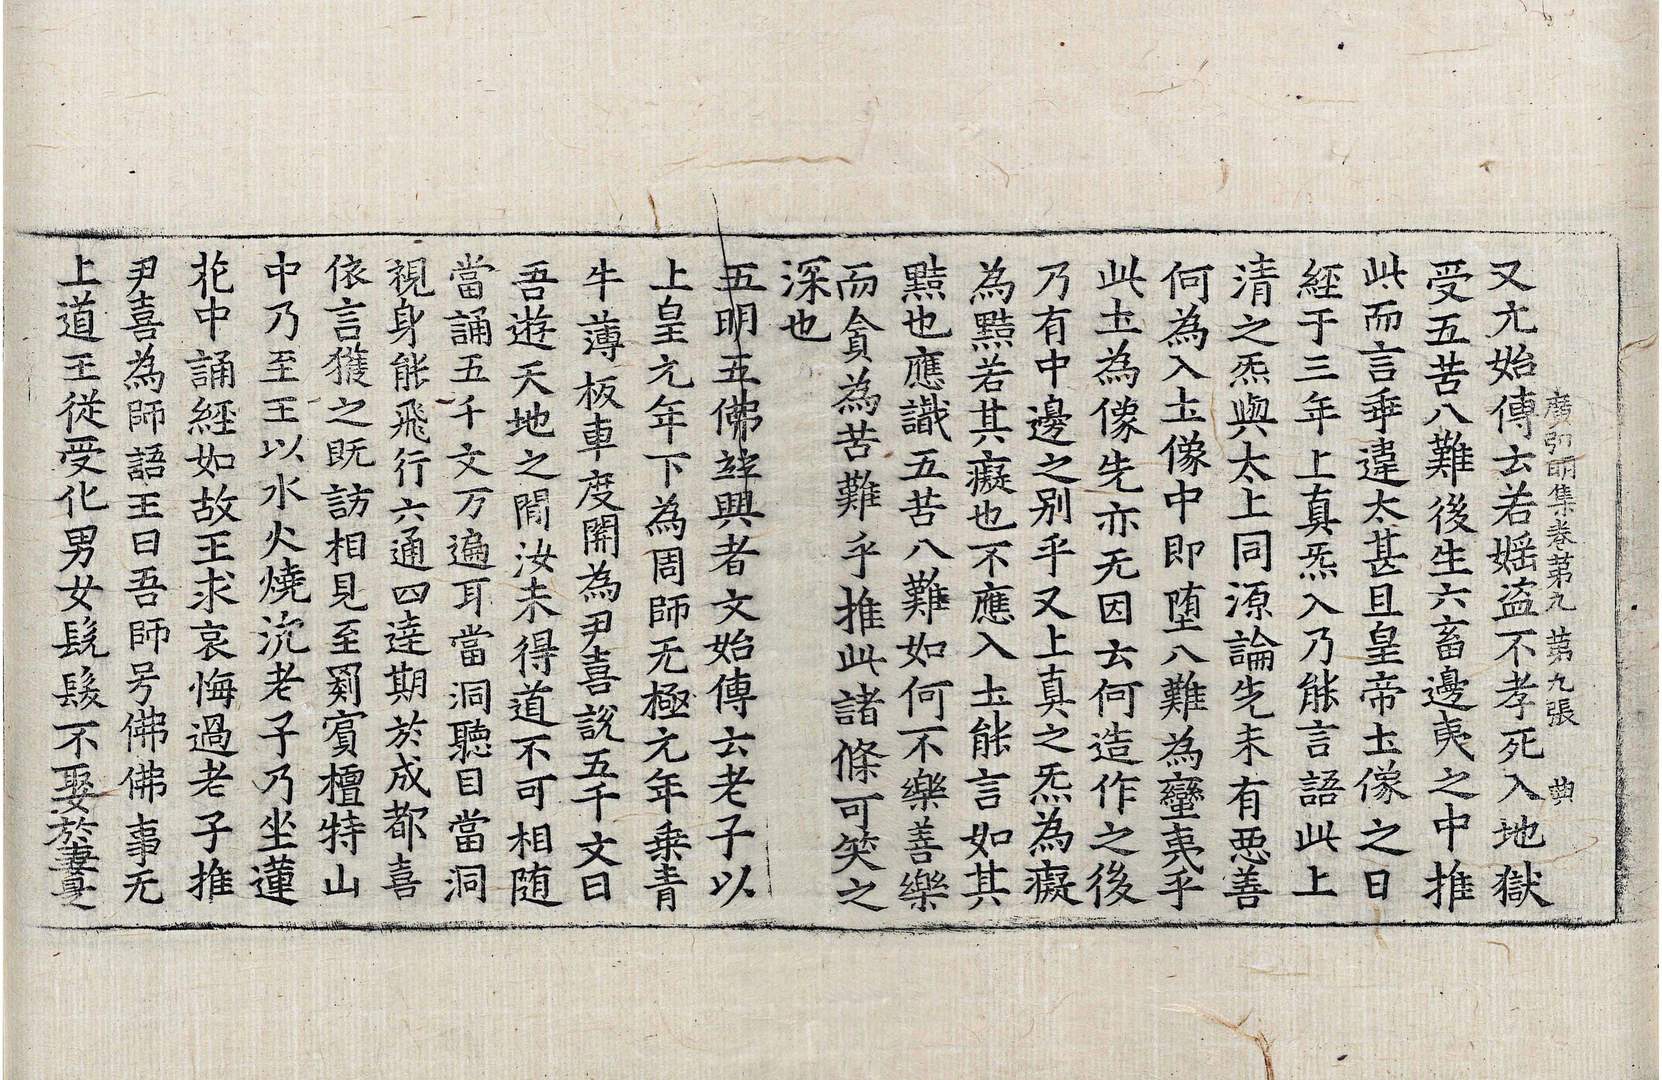 廣弘明集卷第九　第九張　典
又亢始傳云若婬盜不孝死入地獄
受五苦八難後生六畜邊夷之中推
此而言乖違太甚且皇帝土像之日
經于三年上真炁入乃能言語此上
清之炁與太上同源論先未有惡善
何為入土像中即墮八難為蠻夷乎
此土為像先亦无因云何造作之後
乃有中邊之別乎又上真之炁為癡
為黠若其癡也不應入土能言如其
黠也應識五苦八難如何不樂善樂
而貪為苦難乎推此諸條可笑之
深也
五明五佛竝興者文始傳云老子以
上皇元年下為周師无極元年乘青
牛薄板車度關為尹喜說五千文曰
吾遊天地之間汝未得道不可相随
當誦五千文万遍耳當洞聽目當洞
視身能飛行六通四達期於成都喜
依言獲之既訪相見至罽賓檀特山
中乃至王以水火燒沈老子乃坐蓮
花中誦經如故王求哀悔過老子推
尹喜為師語王曰吾師号佛佛事无
上道王從受化男女髡髮不娶於妻是